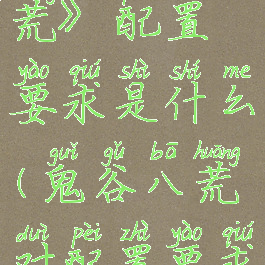 荒》 配置
yào qiú shì shí me
要求是什么
guǐ gǔ bā huāng
(鬼谷八荒
duì pèi zhì yào qiú
对配置要求